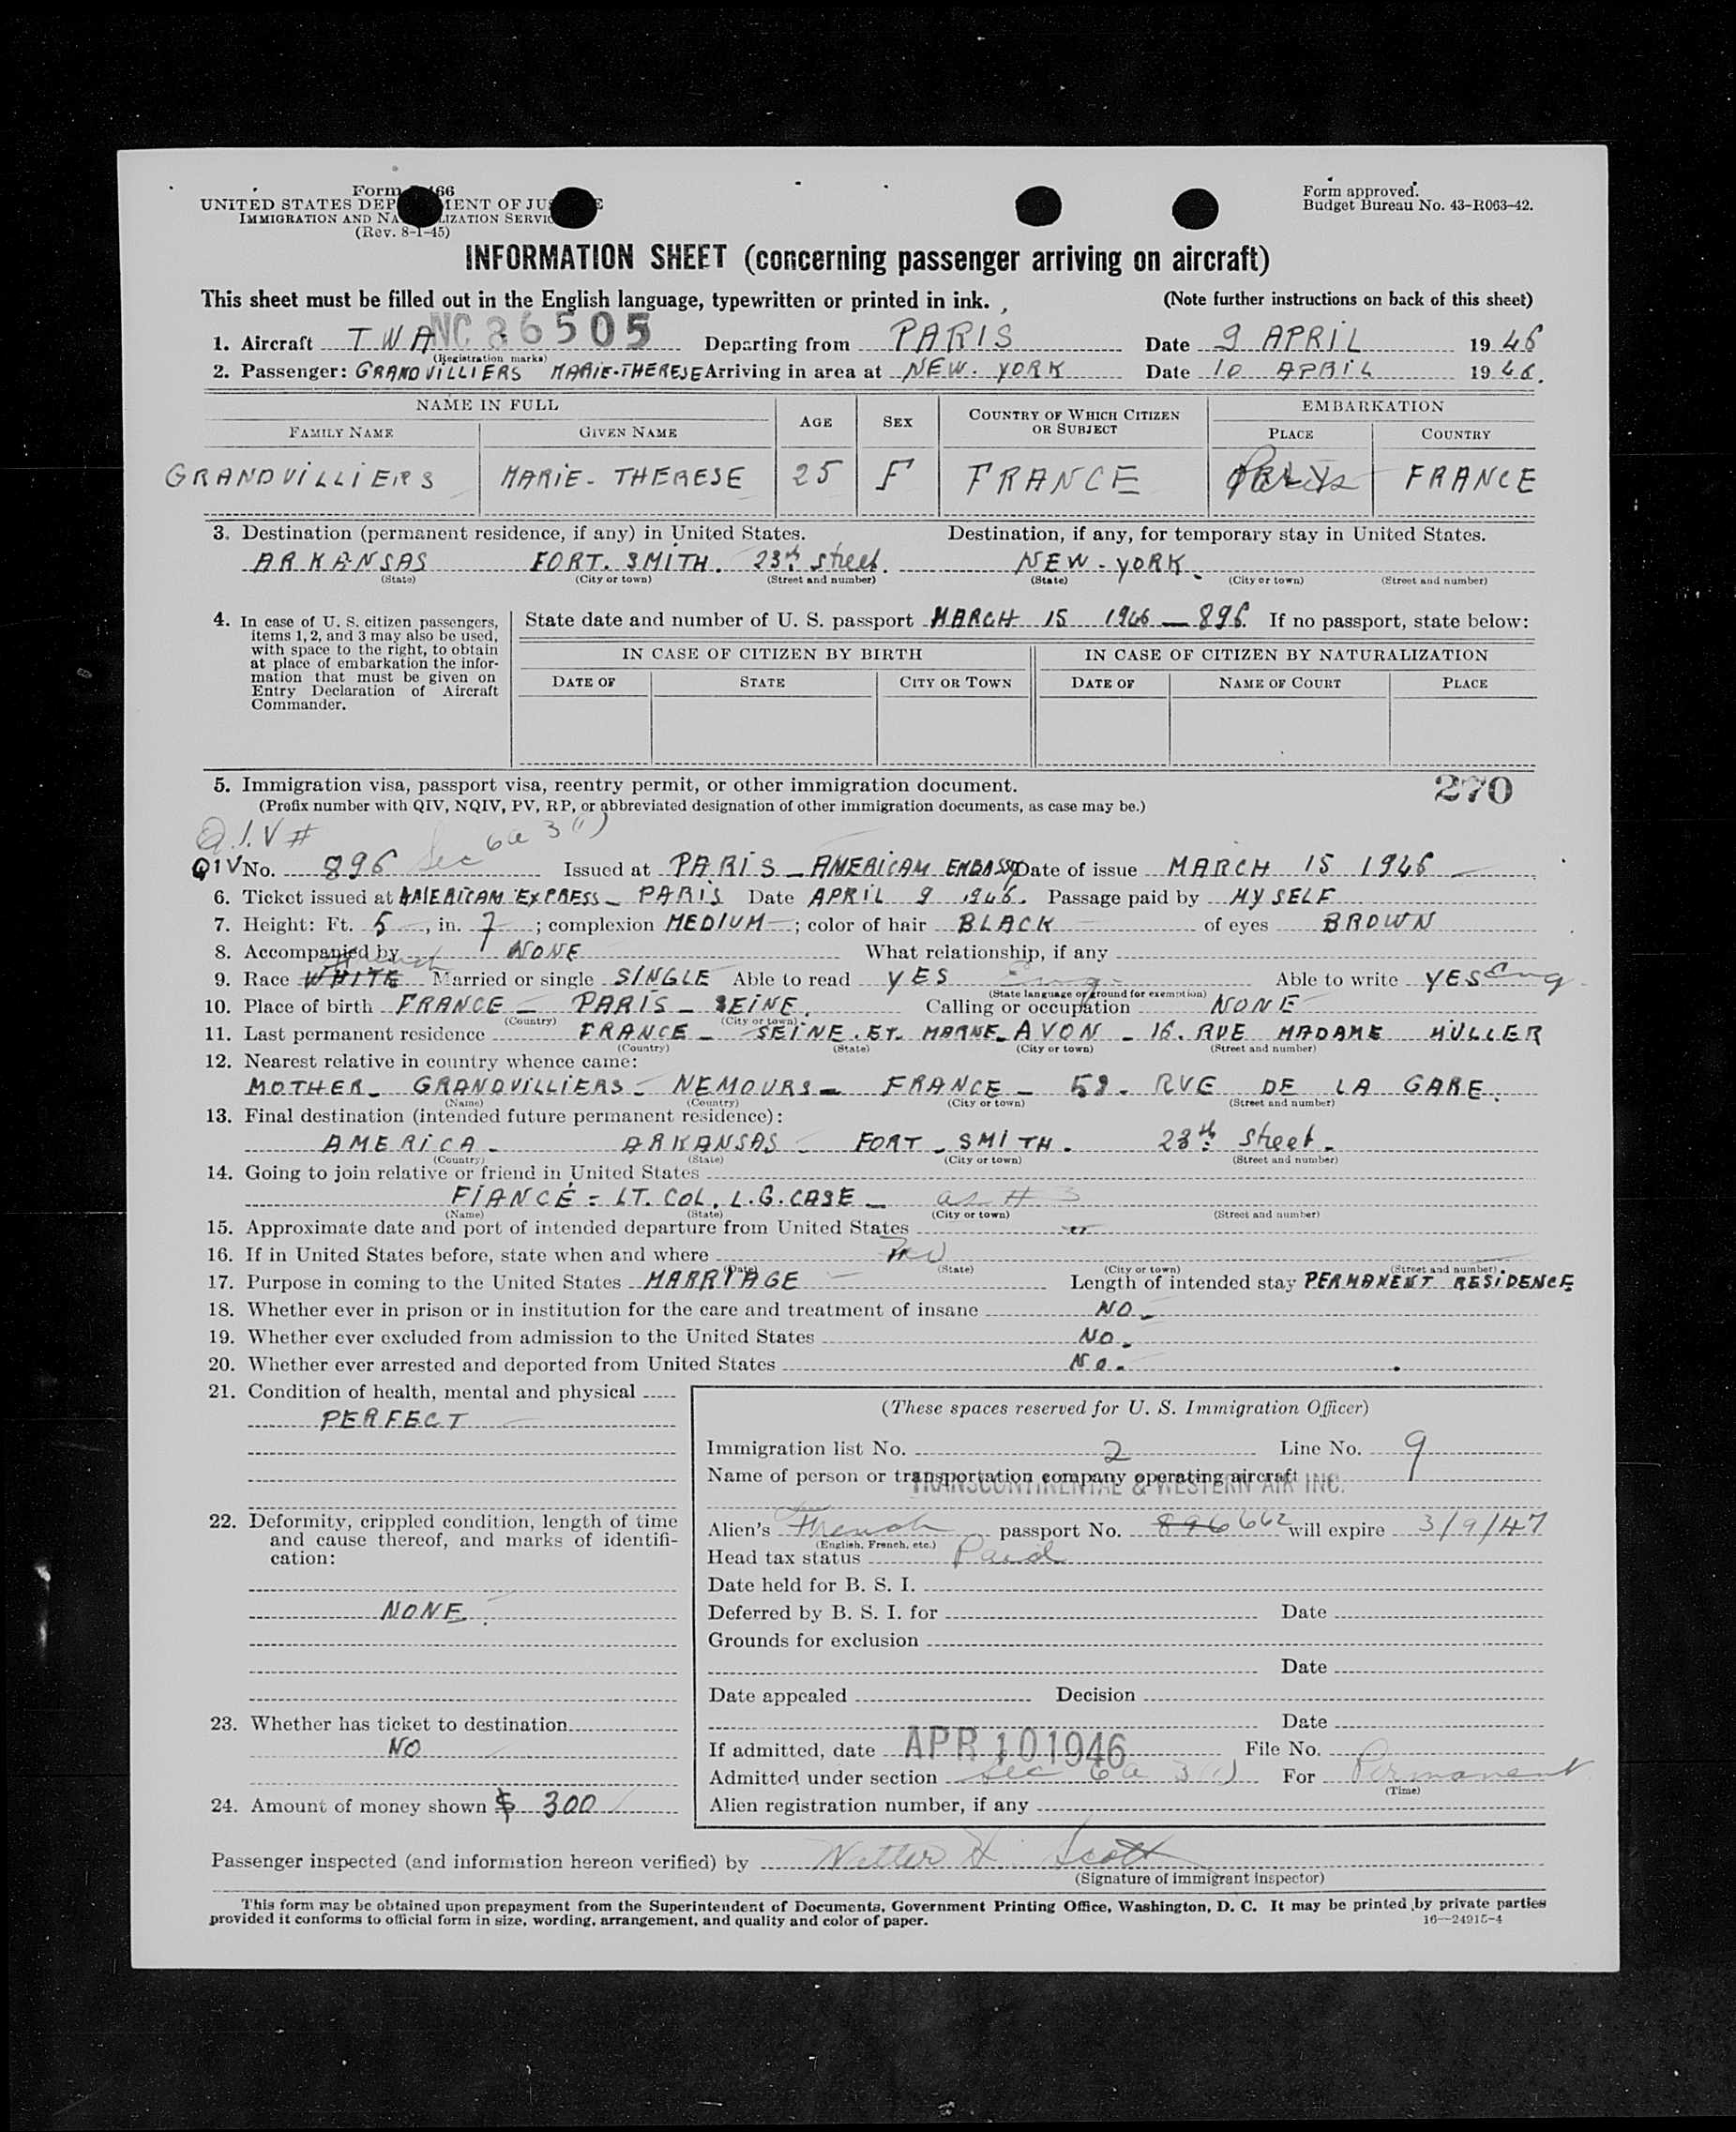 Form 466
UNITED STATES DEPARTMENT OF JUSTICE
IMMIGRATION AND NATURALIZATION SERVICE
(Rev. 8-1-45)
Form approved.
Budget Bureau No. 43-R063-42.
INFORMATION SHEET (concerning passenger arriving on aircraft)
This sheet must be filled out in the English language, typewritten or printed in ink. (Note further instructions on back of this sheet)
1. Aircraft TWA NC 86505 Departing from PARIS Date 9 APRIL 1946
(Registration marks)
2. Passenger: GRANDVILLIERS MARIE-THERESE Arriving in area at NEW-YORK Date 10 APRIL 1946.
NAME IN FULL AGE SEX COUNTRY OF WHICH CITIZEN OR SUBJECT EMBARKATION
FAMILY NAME GIVEN NAME PLACE COUNTRY
GRANDVILLIERS MARIE-THERESE 25 F FRANCE Paris FRANCE
3. Destination (permanent residence, if any) in United States. Destination, if any, for temporary stay in United States.
ARKANSAS FORT. SMITH. 23th street. NEW-YORK.
(State) (City or town) (Street and number) (State) (City or town) (Street and number)
4. In case of U. S. citizen passengers, items 1, 2, and 3 may also be used, with space to the right, to obtain at place of embarkation the information that must be given on Entry Declaration of Aircraft Commander.
State date and number of U. S. passport MARCH 15 1946 — 896. If no passport, state below:
IN CASE OF CITIZEN BY BIRTH IN CASE OF CITIZEN BY NATURALIZATION
DATE OF STATE CITY OR TOWN DATE OF NAME OF COURT PLACE
5. Immigration visa, passport visa, reentry permit, or other immigration document. 270
(Prefix number with QIV, NQIV, PV, RP, or abbreviated designation of other immigration documents, as case may be.)
Q.I.V # Sec 6a 3(1)
QIV No. 896 Issued at PARIS - AMERICAM EMBASSY Date of issue MARCH 15 1946
6. Ticket issued at AMERICAM EXPRESS - PARIS Date APRIL 9 1946. Passage paid by MYSELF
7. Height: Ft. 5, in. 7; complexion MEDIUM; color of hair BLACK of eyes BROWN
8. Accompanied by NONE What relationship, if any
9. Race WHITE French Married or single SINGLE Able to read YES Eng. Able to write YES Eng
(State language or ground for exemption)
10. Place of birth FRANCE - PARIS - SEINE. Calling or occupation NONE
(Country) (City or town)
11. Last permanent residence FRANCE - SEINE.ET.MARNE - AVON - 16. RUE MADAME MULLER
(Country) (State) (City or town) (Street and number)
12. Nearest relative in country whence came:
MOTHER - GRANDVILLIERS - NEMOURS - FRANCE - 59 - RUE DE LA GARE.
(Name) (Country) (City or town) (Street and number)
13. Final destination (intended future permanent residence):
AMERICA - ARKANSAS - FORT - SMITH. 23th street.
(Country) (State) (City or town) (Street and number)
14. Going to join relative or friend in United States
FIANCÉ = LT. COL. L.G. CASE - as # 3
(Name) (State) (City or town) (Street and number)
15. Approximate date and port of intended departure from United States
16. If in United States before, state when and where No
(Date) (State) (City or town) (Street and number)
17. Purpose in coming to the United States MARRIAGE Length of intended stay PERMANENT RESIDENCE
18. Whether ever in prison or in institution for the care and treatment of insane NO.
19. Whether ever excluded from admission to the United States NO.
20. Whether ever arrested and deported from United States No.
21. Condition of health, mental and physical
PERFECT
22. Deformity, crippled condition, length of time and cause thereof, and marks of identification:
NONE.
23. Whether has ticket to destination
NO
24. Amount of money shown $ 300
(These spaces reserved for U. S. Immigration Officer)
Immigration list No. 2 Line No. 9
Name of person or transportation company operating aircraft
TRANSCONTINENTAL & WESTERN AIR INC.
Alien's French passport No. 896 662 will expire 3/9/47
(English, French, etc.)
Head tax status Paid
Date held for B. S. I.
Deferred by B. S. I. for Date
Grounds for exclusion
Date
Date appealed Decision
Date
If admitted, date APR 10 1946 File No.
Admitted under section Sec 6a 3(1) For Permanent
(Time)
Alien registration number, if any
Passenger inspected (and information hereon verified) by Walter H. Scott
(Signature of immigrant inspector)
This form may be obtained upon prepayment from the Superintendent of Documents, Government Printing Office, Washington, D. C. It may be printed by private parties
provided it conforms to official form in size, wording, arrangement, and quality and color of paper. 16—24915-4